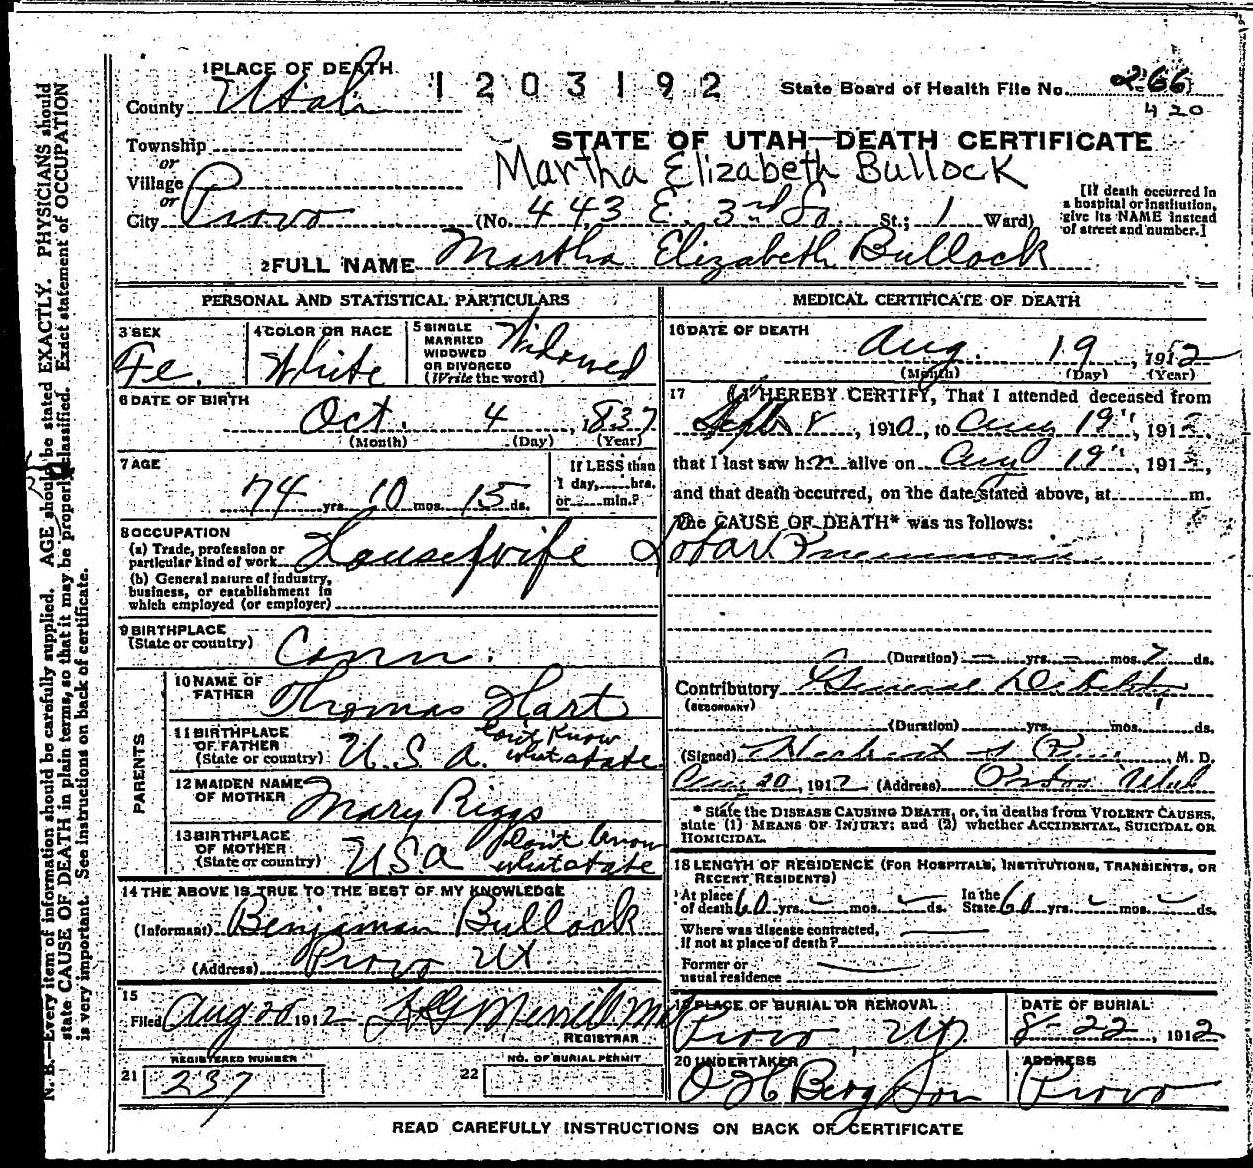 1 PLACE OF DEATH
1203192
State Board of Health File No. 266
420
County Utah
Township
or
Village
or
City Provo
STATE OF UTAH—DEATH CERTIFICATE
Martha Elizabeth Bullock
(No. 443 E. 3rd So. St.; 1 Ward)
[If death occurred in
a hospital or institution,
give its NAME instead
of street and number.]
2 FULL NAME Martha Elizabeth Bullock
PERSONAL AND STATISTICAL PARTICULARS
3 SEX
Fe.
4 COLOR OR RACE
White
5 SINGLE
MARRIED
WIDOWED
OR DIVORCED
(Write the word)
Widowed
6 DATE OF BIRTH
Oct. 4, 1837
(Month) (Day) (Year)
7 AGE
74 yrs. 10 mos. 15 ds.
If LESS than
1 day, hrs.
or min.?
8 OCCUPATION
(a) Trade, profession or
particular kind of work Housewife
(b) General nature of industry,
business, or establishment in
which employed (or employer)
9 BIRTHPLACE
(State or country)
Conn.
PARENTS
10 NAME OF
FATHER
Thomas Hart
11 BIRTHPLACE
OF FATHER
(State or country) U.S.A. don't know
what state
12 MAIDEN NAME
OF MOTHER
Mary Riggs
13 BIRTHPLACE
OF MOTHER
(State or country) USA don't know
what state
14 THE ABOVE IS TRUE TO THE BEST OF MY KNOWLEDGE
(Informant) Benjaman Bullock
(Address) Provo Ut
15
Filed Aug 20 1912 Merrill
REGISTRAR
REGISTERED NUMBER
21 237
NO. OF BURIAL PERMIT
22
MEDICAL CERTIFICATE OF DEATH
16 DATE OF DEATH
Aug. 19, 1912
(Month) (Day) (Year)
17 I HEREBY CERTIFY, That I attended deceased from
Sept 8, 1910, to Aug 19", 1912,
that I last saw her alive on Aug 19", 1912,
and that death occurred, on the date stated above, at m.
The CAUSE OF DEATH* was as follows:
Lobar Pneumonia
(Duration) — yrs. — mos. 7 ds.
Contributory General Debility
(SECONDARY)
(Duration) yrs. mos. ds.
(Signed) M. D.
Aug 20, 1912 (Address) Provo Utah
* State the DISEASE CAUSING DEATH, or, in deaths from VIOLENT CAUSES,
state (1) MEANS OF INJURY; and (2) whether ACCIDENTAL, SUICIDAL OR
HOMICIDAL.
18 LENGTH OF RESIDENCE (FOR HOSPITALS, INSTITUTIONS, TRANSIENTS, OR
RECENT RESIDENTS)
At place
of death 60 yrs. mos. ds.
In the
State 60 yrs. mos. ds.
Where was disease contracted,
if not at place of death?
Former or
usual residence
19 PLACE OF BURIAL OR REMOVAL
Provo
DATE OF BURIAL
8-22, 1912
20 UNDERTAKER
O H Berg Son
ADDRESS
Provo
READ CAREFULLY INSTRUCTIONS ON BACK OF CERTIFICATE
N. B.—Every item of information should be carefully supplied. AGE should be stated EXACTLY. PHYSICIANS should
state CAUSE OF DEATH in plain terms, so that it may be properly classified. Exact statement of OCCUPATION
is very important. See instructions on back of certificate.